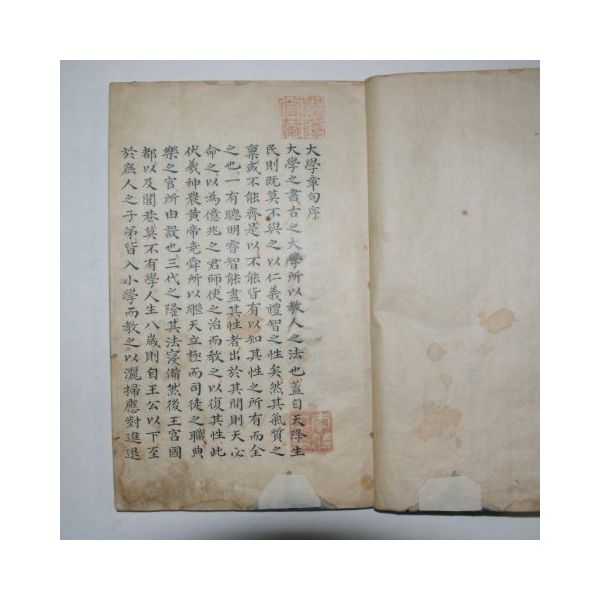 大學章句序
大學之書古之大學所以敎人之法也蓋自天降生
民則既莫不與之以仁義禮智之性矣然其氣質之
稟或不能齊是以不能皆有以知其性之所有而全
之也一有聰明睿智能盡其性者出於其間則天必
命之以為億兆之君師使之治而敎之以復其性此
伏羲神農黃帝堯舜所以繼天立極而司徒之職典
樂之官所由設也三代之隆其法寖備然後王宮國
都以及閭巷莫不有學人生八歲則自王公以下至
於庶人之子弟皆入小學而教之以灑掃應對進退